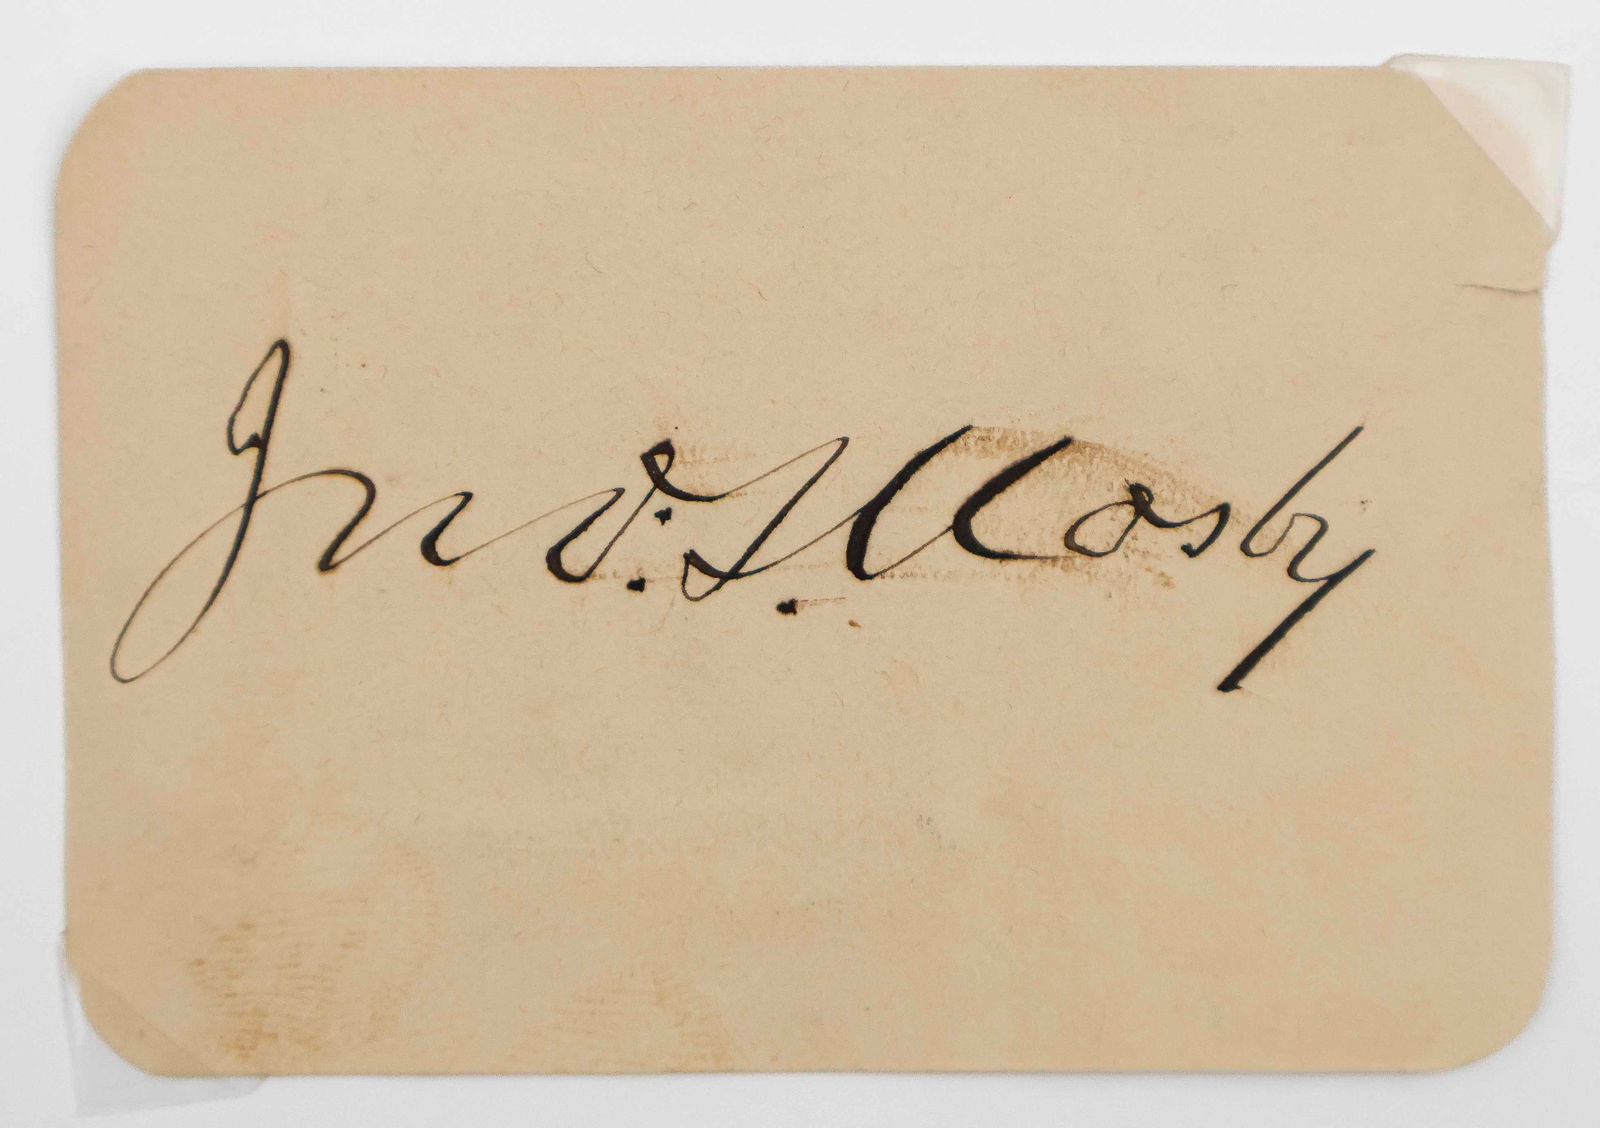 Jno. S. Mosby